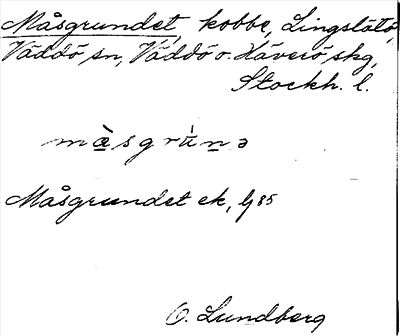 Måsgrundet, kobbe, Lingslätö,
Väddö sn, Väddö o. Häverö skg,
Stockh. l.
màsgrùnə
Måsgrundet ek, bl 85
O. Lundberg